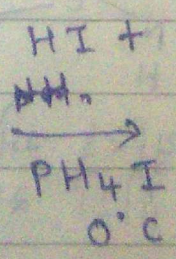 HI +
PH4I
0°C